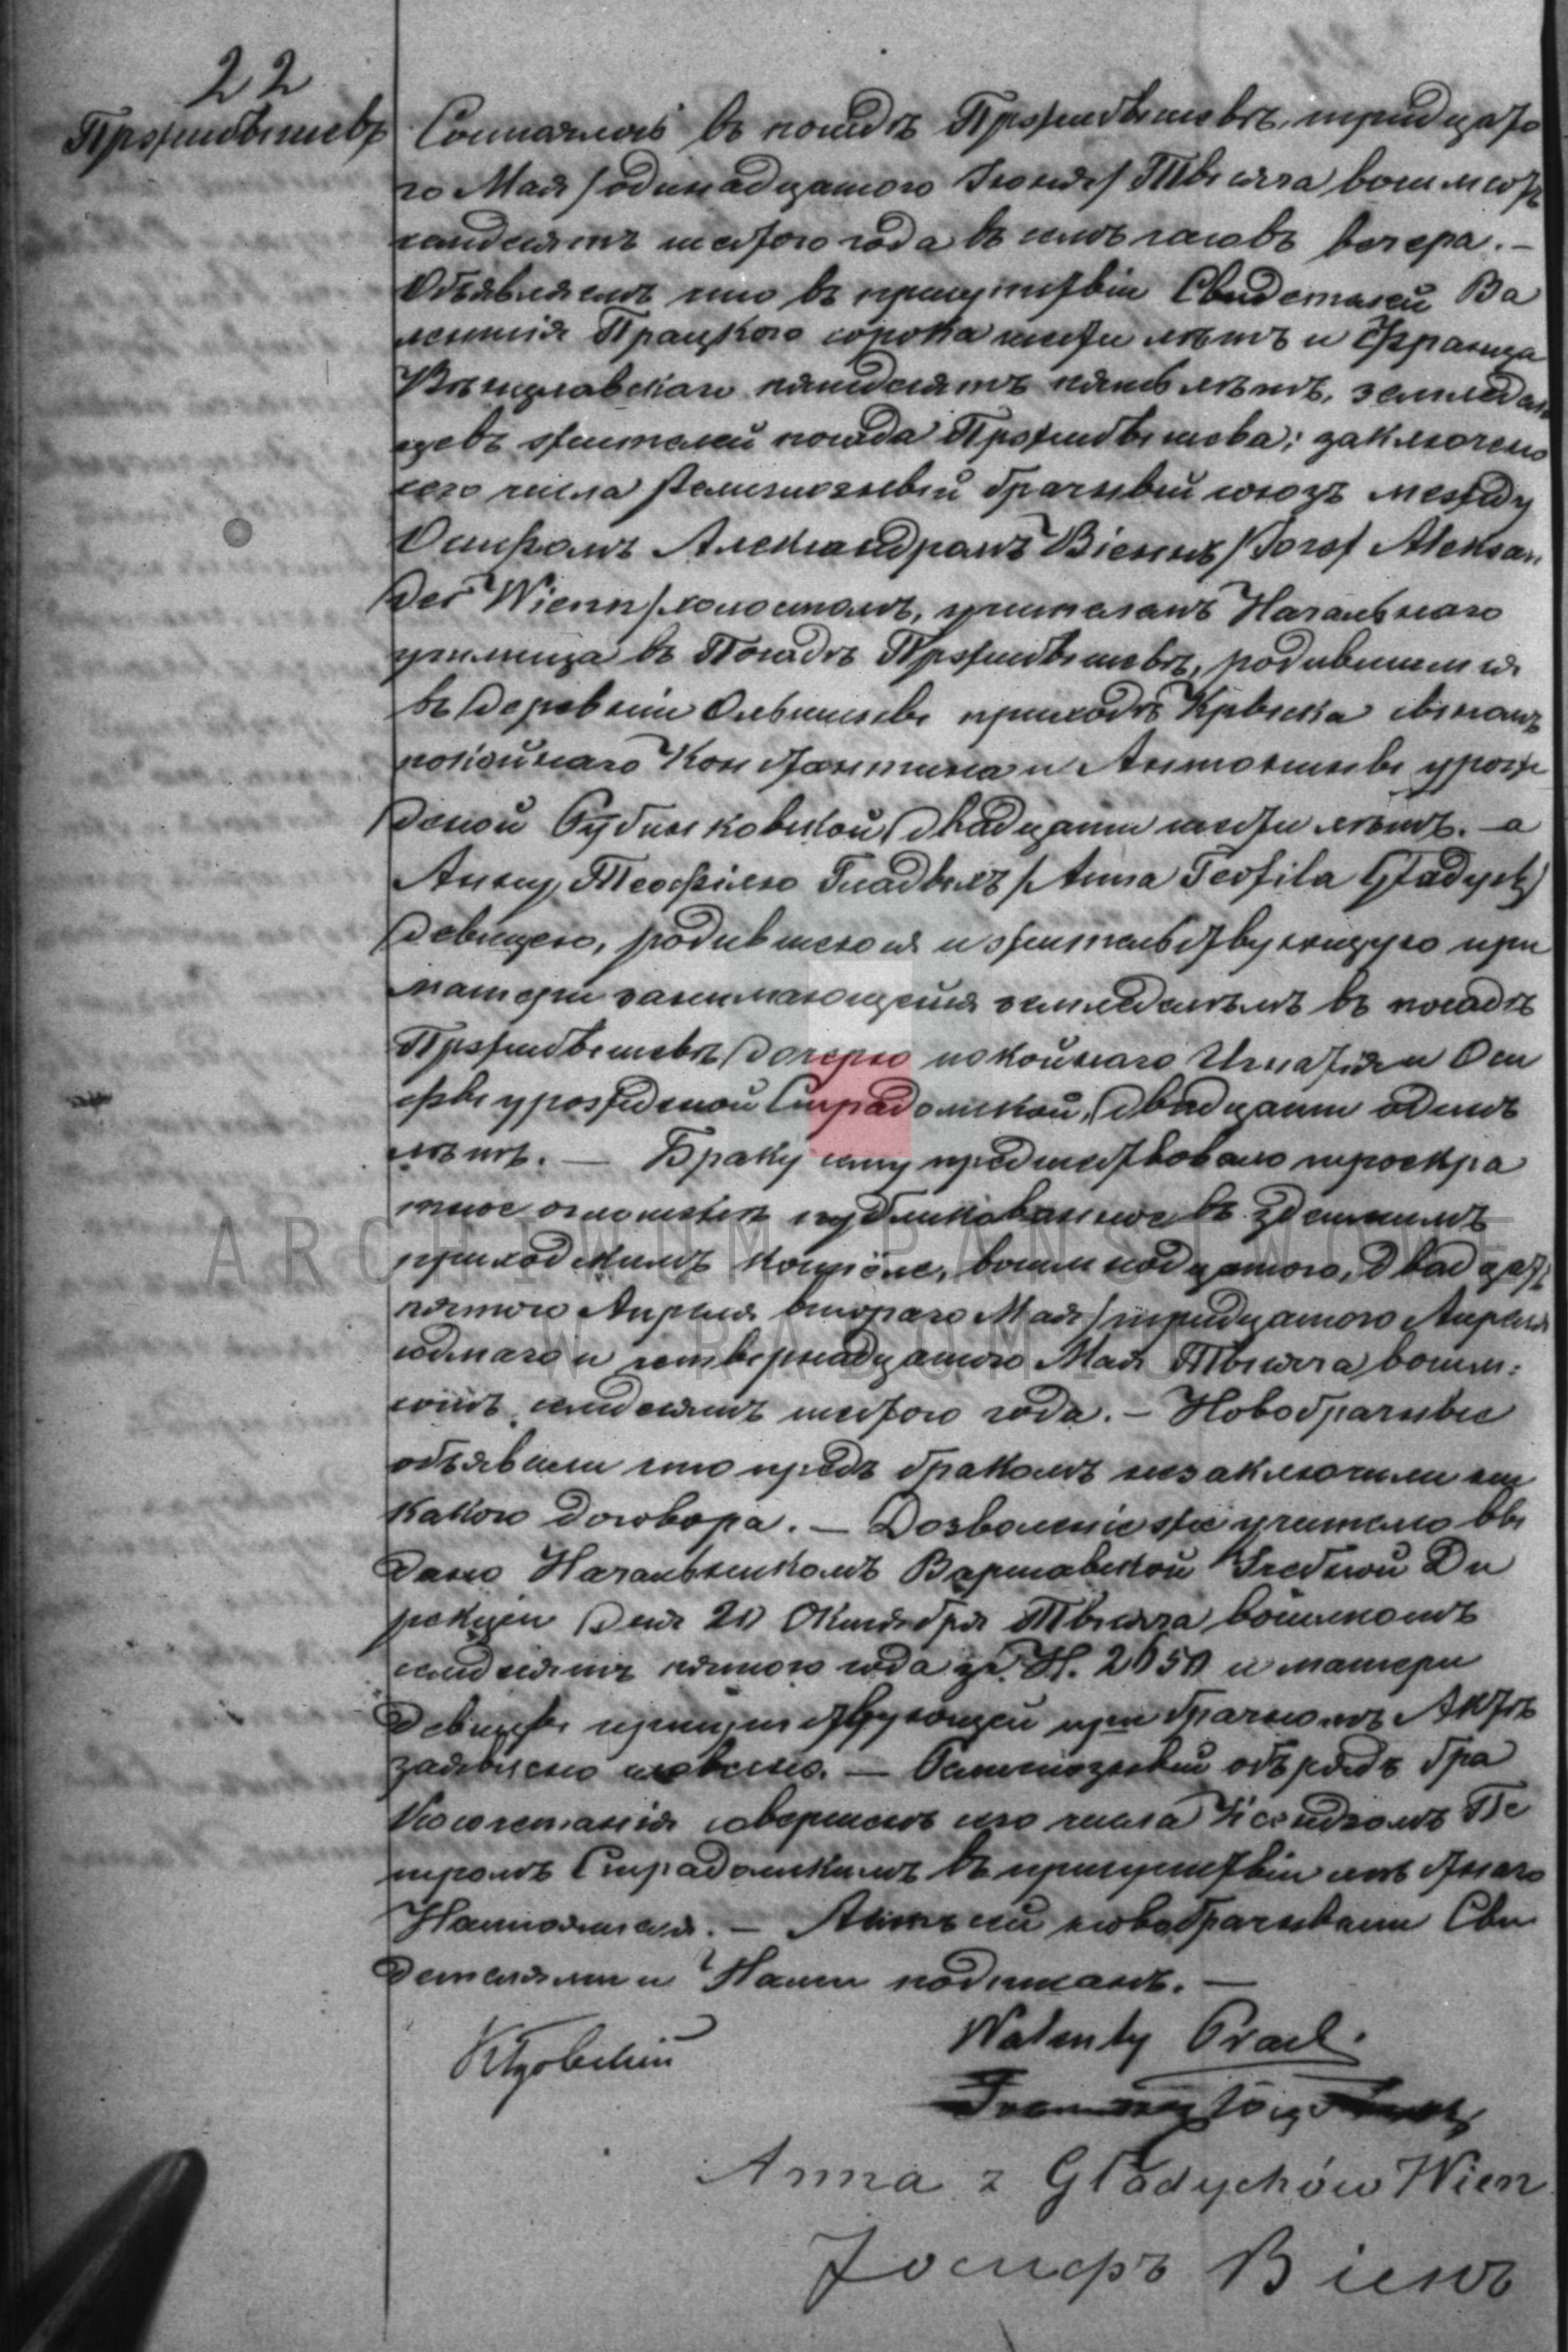 22
Пржитывшевъ
Состоялось въ посадѣ Пржитывшевѣ, тридцато
го Мая /одинадцатого Іюня/ Тысяча восемсотъ
семдесятъ шестого года въ семъ часовъ вечера. –
Объявляемъ что въ присутствіи Свидетелей Ва
лентія Працкого сорока шести лѣтъ и Франца
пятидесятъ пять лѣтъ, земледел
цевъ жителей посада Пржитывшева; заключено
сего числа Религіозный брачный союзъ между
Осифомъ Александромъ Віеннъ /Josef Aleksan
der Wienn/ холостомъ, учителемъ Начальнаго
училища въ Посадѣ Пржитывшевѣ, родившимся
въ деревни приходѣ сыномъ
покойнаго Константина и Антонины урож
деной двадцати шести лѣтъ. – а
Анною Теофилею Гладыхъ /Anna Teofila Gładych/
девицею, родившеюся и жительствующую при
матери занимающейся земледелѣмъ въ посадѣ
Пржитывшевѣ дочерью покойнаго Игнатія и Оси
фы урожденой Страдомской, двадцати одинъ
лѣтъ. — Браку сему предшествовало троекра
тное оглошенiе публикованное въ здешнимъ
приходскимъ Костёле, восемнадцатого, двадцать
пятого Апреля второго Мая /тридцатого Апреля
седмаго и четвернадцатого Мая Тысяча восем:
сотъ семдесятъ шестого года. – Новобрачные
объявили что предъ бракомъ незаключили ни
какого договора. – Дозволеніе же учителю вы
дано Начальникомъ Варшавской Учебной Ди
рекціи дня Октября Тысяча восемсотъ
семдесятъ пятого года за Н. и матери
девицы присутствующей при брачномъ Актѣ
заявлено словесно. — Религіозный обрядъ бра
косочетанія совершенъ сего числа Ксендзомъ Пе
тромъ Страдомскимъ въ присутствіи мѣстнаго
Настоятеля. – Актъ сей новобрачными Сви
детелями и Нами подписанъ. —
Walenty Prael.
Anna z Gładychów Wien
Іосифъ Віенъ
ARCHIWUM PAŃSTWOWE
W RADOMIU